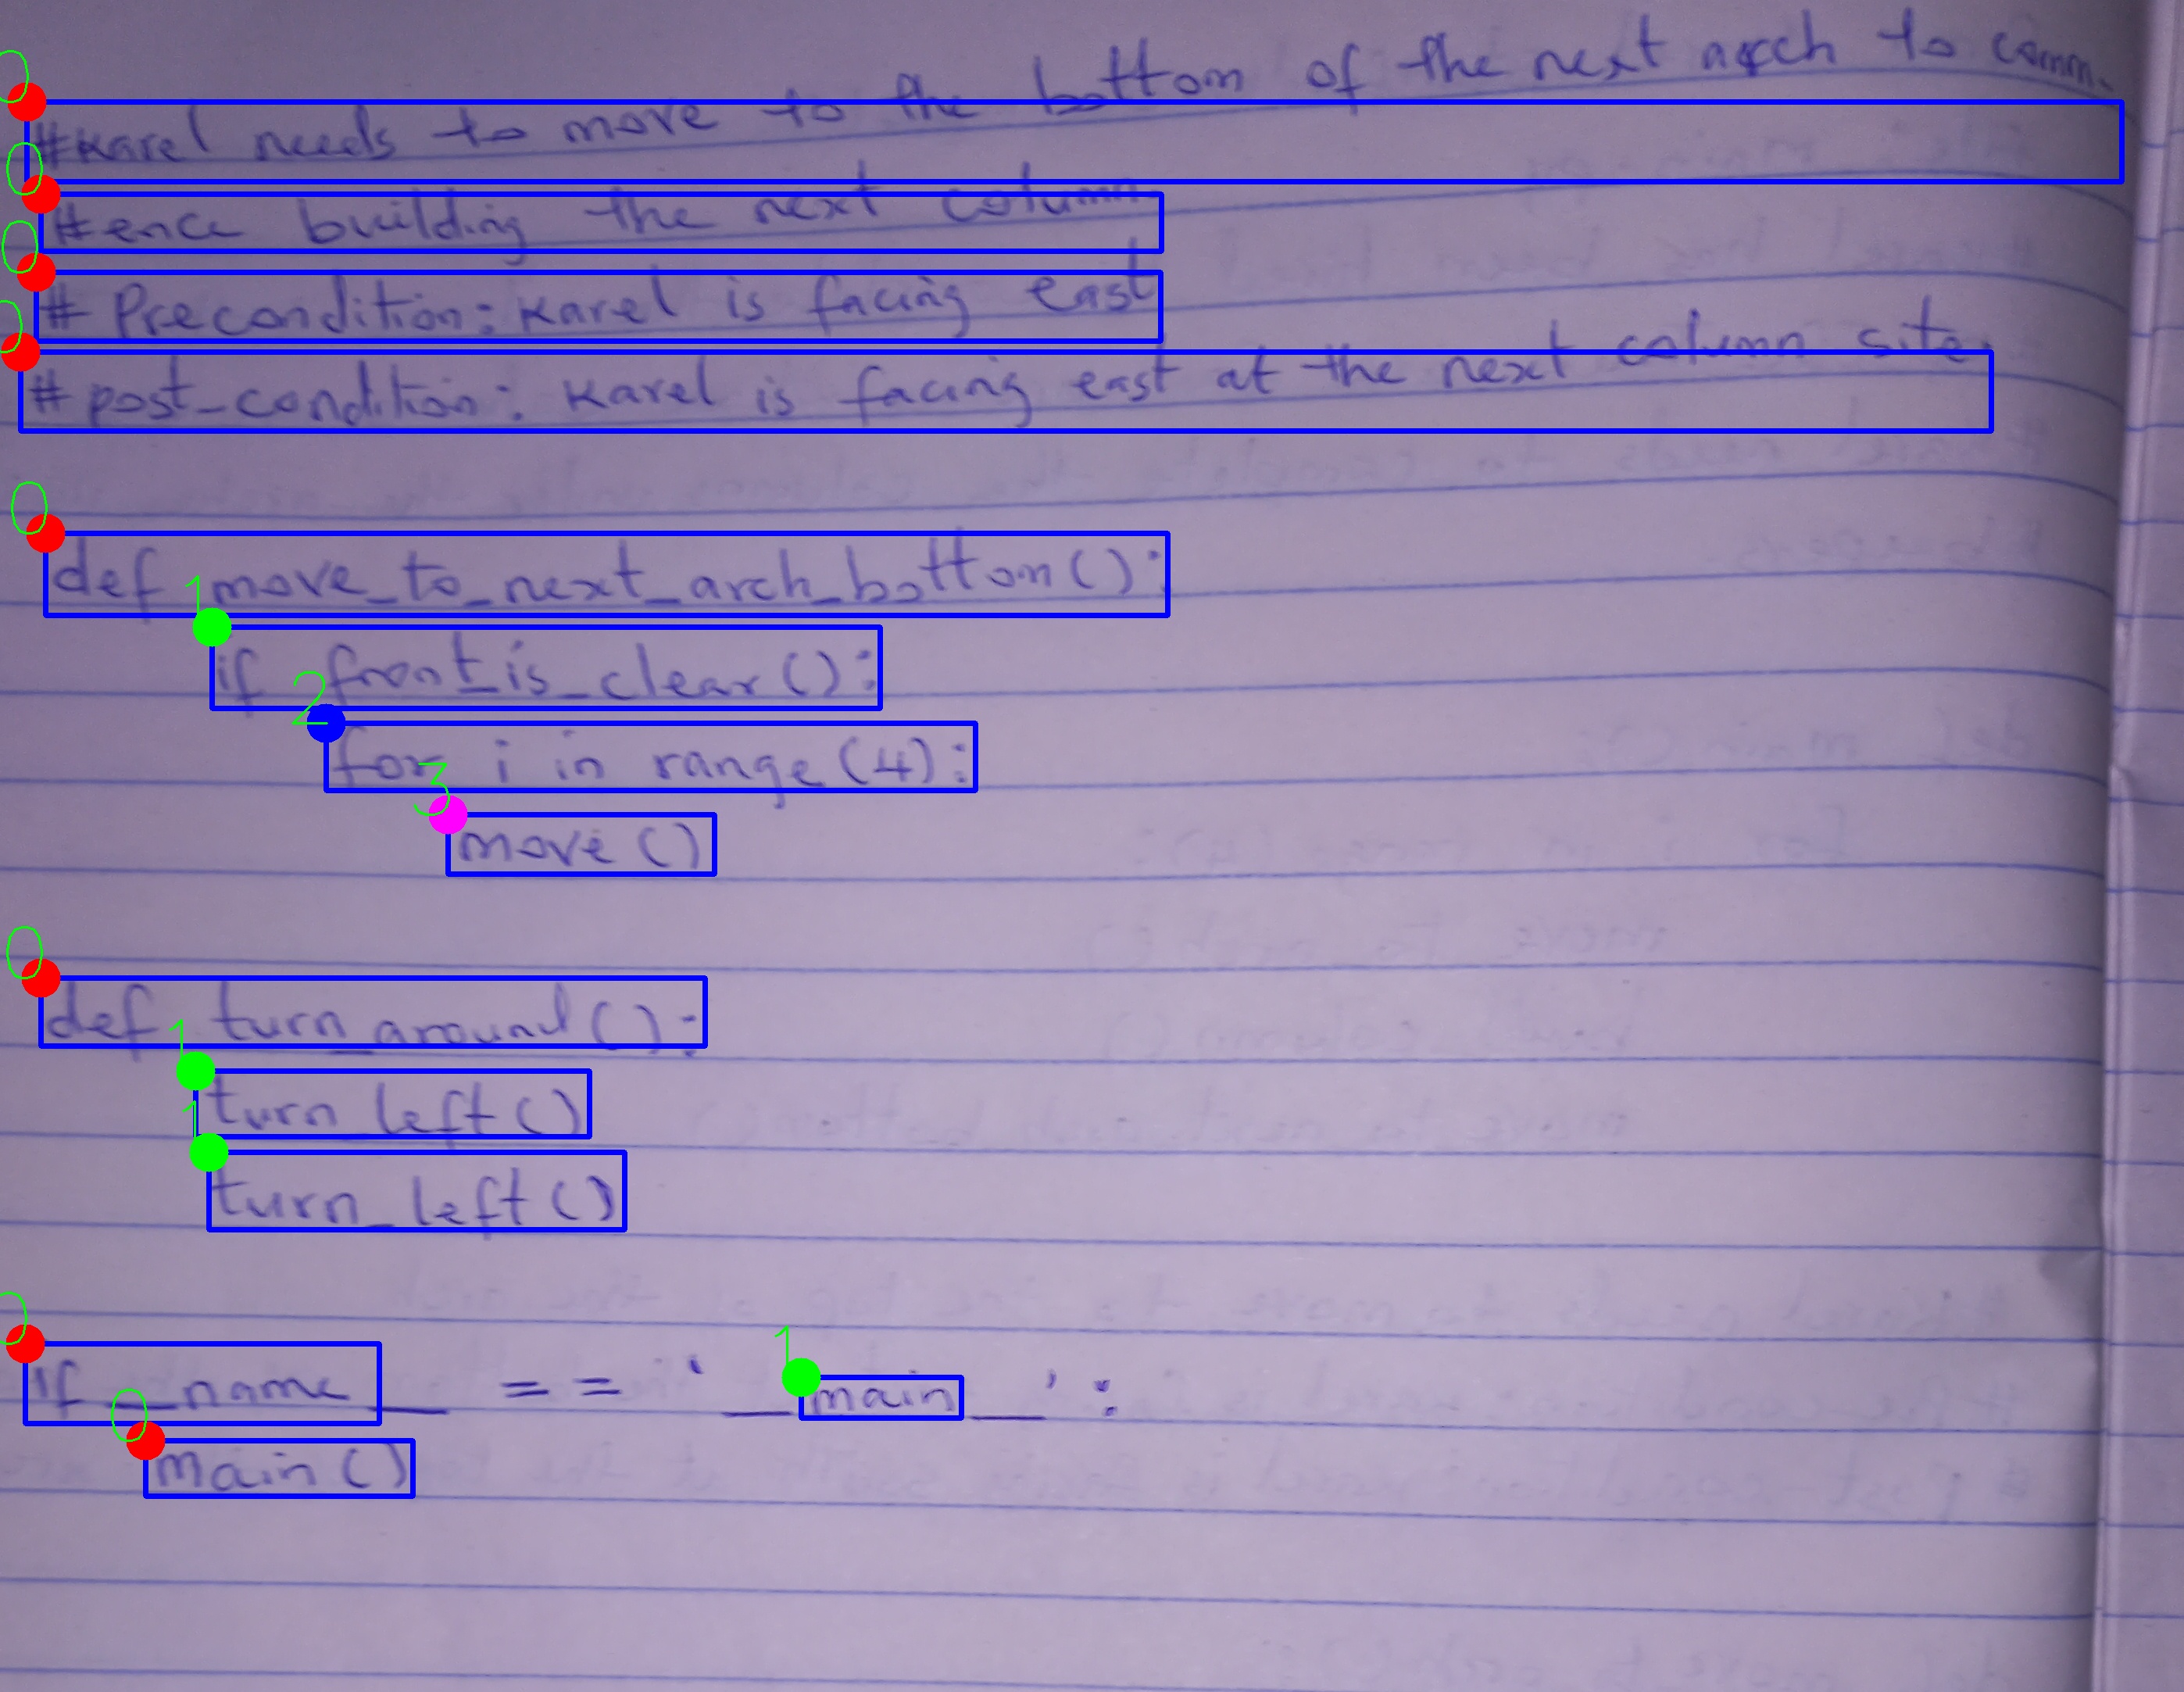 #Karel needs to move to the bottom of the next arch to comm-
#ence building the next column.
# Precondition: Karel is facing east
# post_condition: Karel is facing east at the next column site.
0
0
0
0
0
def move_to_next_arch_bottom():
1
if front_is_clear():
2
for i in range(4):
3
move()
0
def turn_around():
1
turn_left()
1
turn_left()
0
if __name__ == '__main__':
1
0
main()